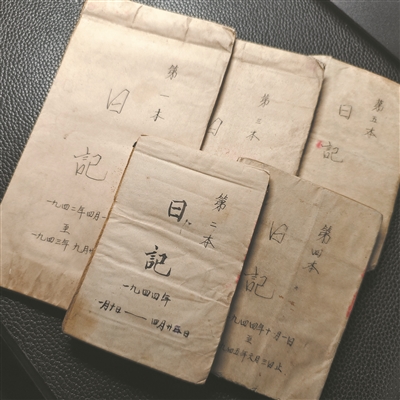 第一本
日記
一九四二年四月一
至
一九四三年九月十
第三本
日
第五本
日記
第二本
日記
一九四四年
一月十日——四月廿五日
第四本
日記
九四四年十月一日
至